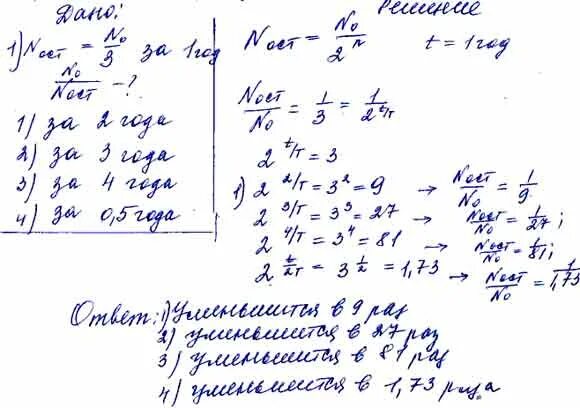 Дано:
1) Nост = N₀/3 за 1 год
N₀/Nост - ?
1) за 2 года
2) за 3 года
3) за 4 года
4) за 0,5 года
Решение
Nост = N₀/2ⁿ t = 1 год
Nост/N₀ = 1/3 = 1/2^(t/T)
2^(t/T) = 3
1) 2^(2/T) = 3² = 9 → Nост/N₀ = 1/9
2^(3/T) = 3³ = 27 → Nост/N₀ = 1/27;
2^(4/T) = 3⁴ = 81 → Nост/N₀ = 1/81;
2^(t/2T) = 3^(1/2) = 1,73 → Nост/N₀ = 1/1,73
Ответ: 1) Уменьшится в 9 раз
2) уменьшится в 27 раз
3) уменьшится в 81 раз
4) уменьшится в 1,73 раза